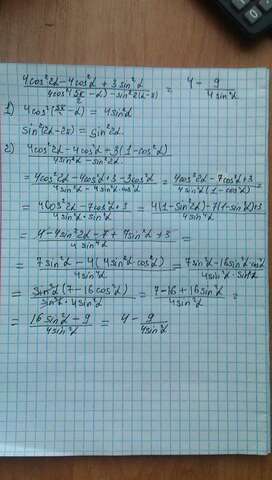 (4cos²2α - 4cos²α + 3sin²α) / (4cos²(5π/2 - α) - sin²2(α-π)) = 4 - 9/(4sin²α)
1) 4cos²(5π/2 - α) = 4sin²α
sin²(2α-2π) = sin²2α.
2) (4cos²2α - 4cos²α + 3(1-cos²α)) / (4sin²α - sin²2α) =
= (4cos²2α - 4cos²α + 3 - 3cos²α) / (4sin²α - 4sin²α cos²α) = (4cos²2α - 7cos²α + 3) / (4sin²α(1-cos²α)) =
= (4cos²2α - 7cos²α + 3) / (4sin⁴α) = (4(1-sin²2α) - 7(1-sin²α) + 3) / (4sin⁴α) =
= (4 - 4sin²2α - 7 + 7sin²α + 3) / (4sin⁴α) =
= (7sin²α - 4(4sin²α cos²α)) / (4sin⁴α) = (7sin²α - 16sin²α cos²α) / (4sin²α · sin²α) =
= (sin²α(7 - 16cos²α)) / (sin²α · 4sin²α) = (7 - 16 + 16sin²α) / (4sin²α) =
= (16sin²α - 9) / (4sin²α) = 4 - 9/(4sin²α)